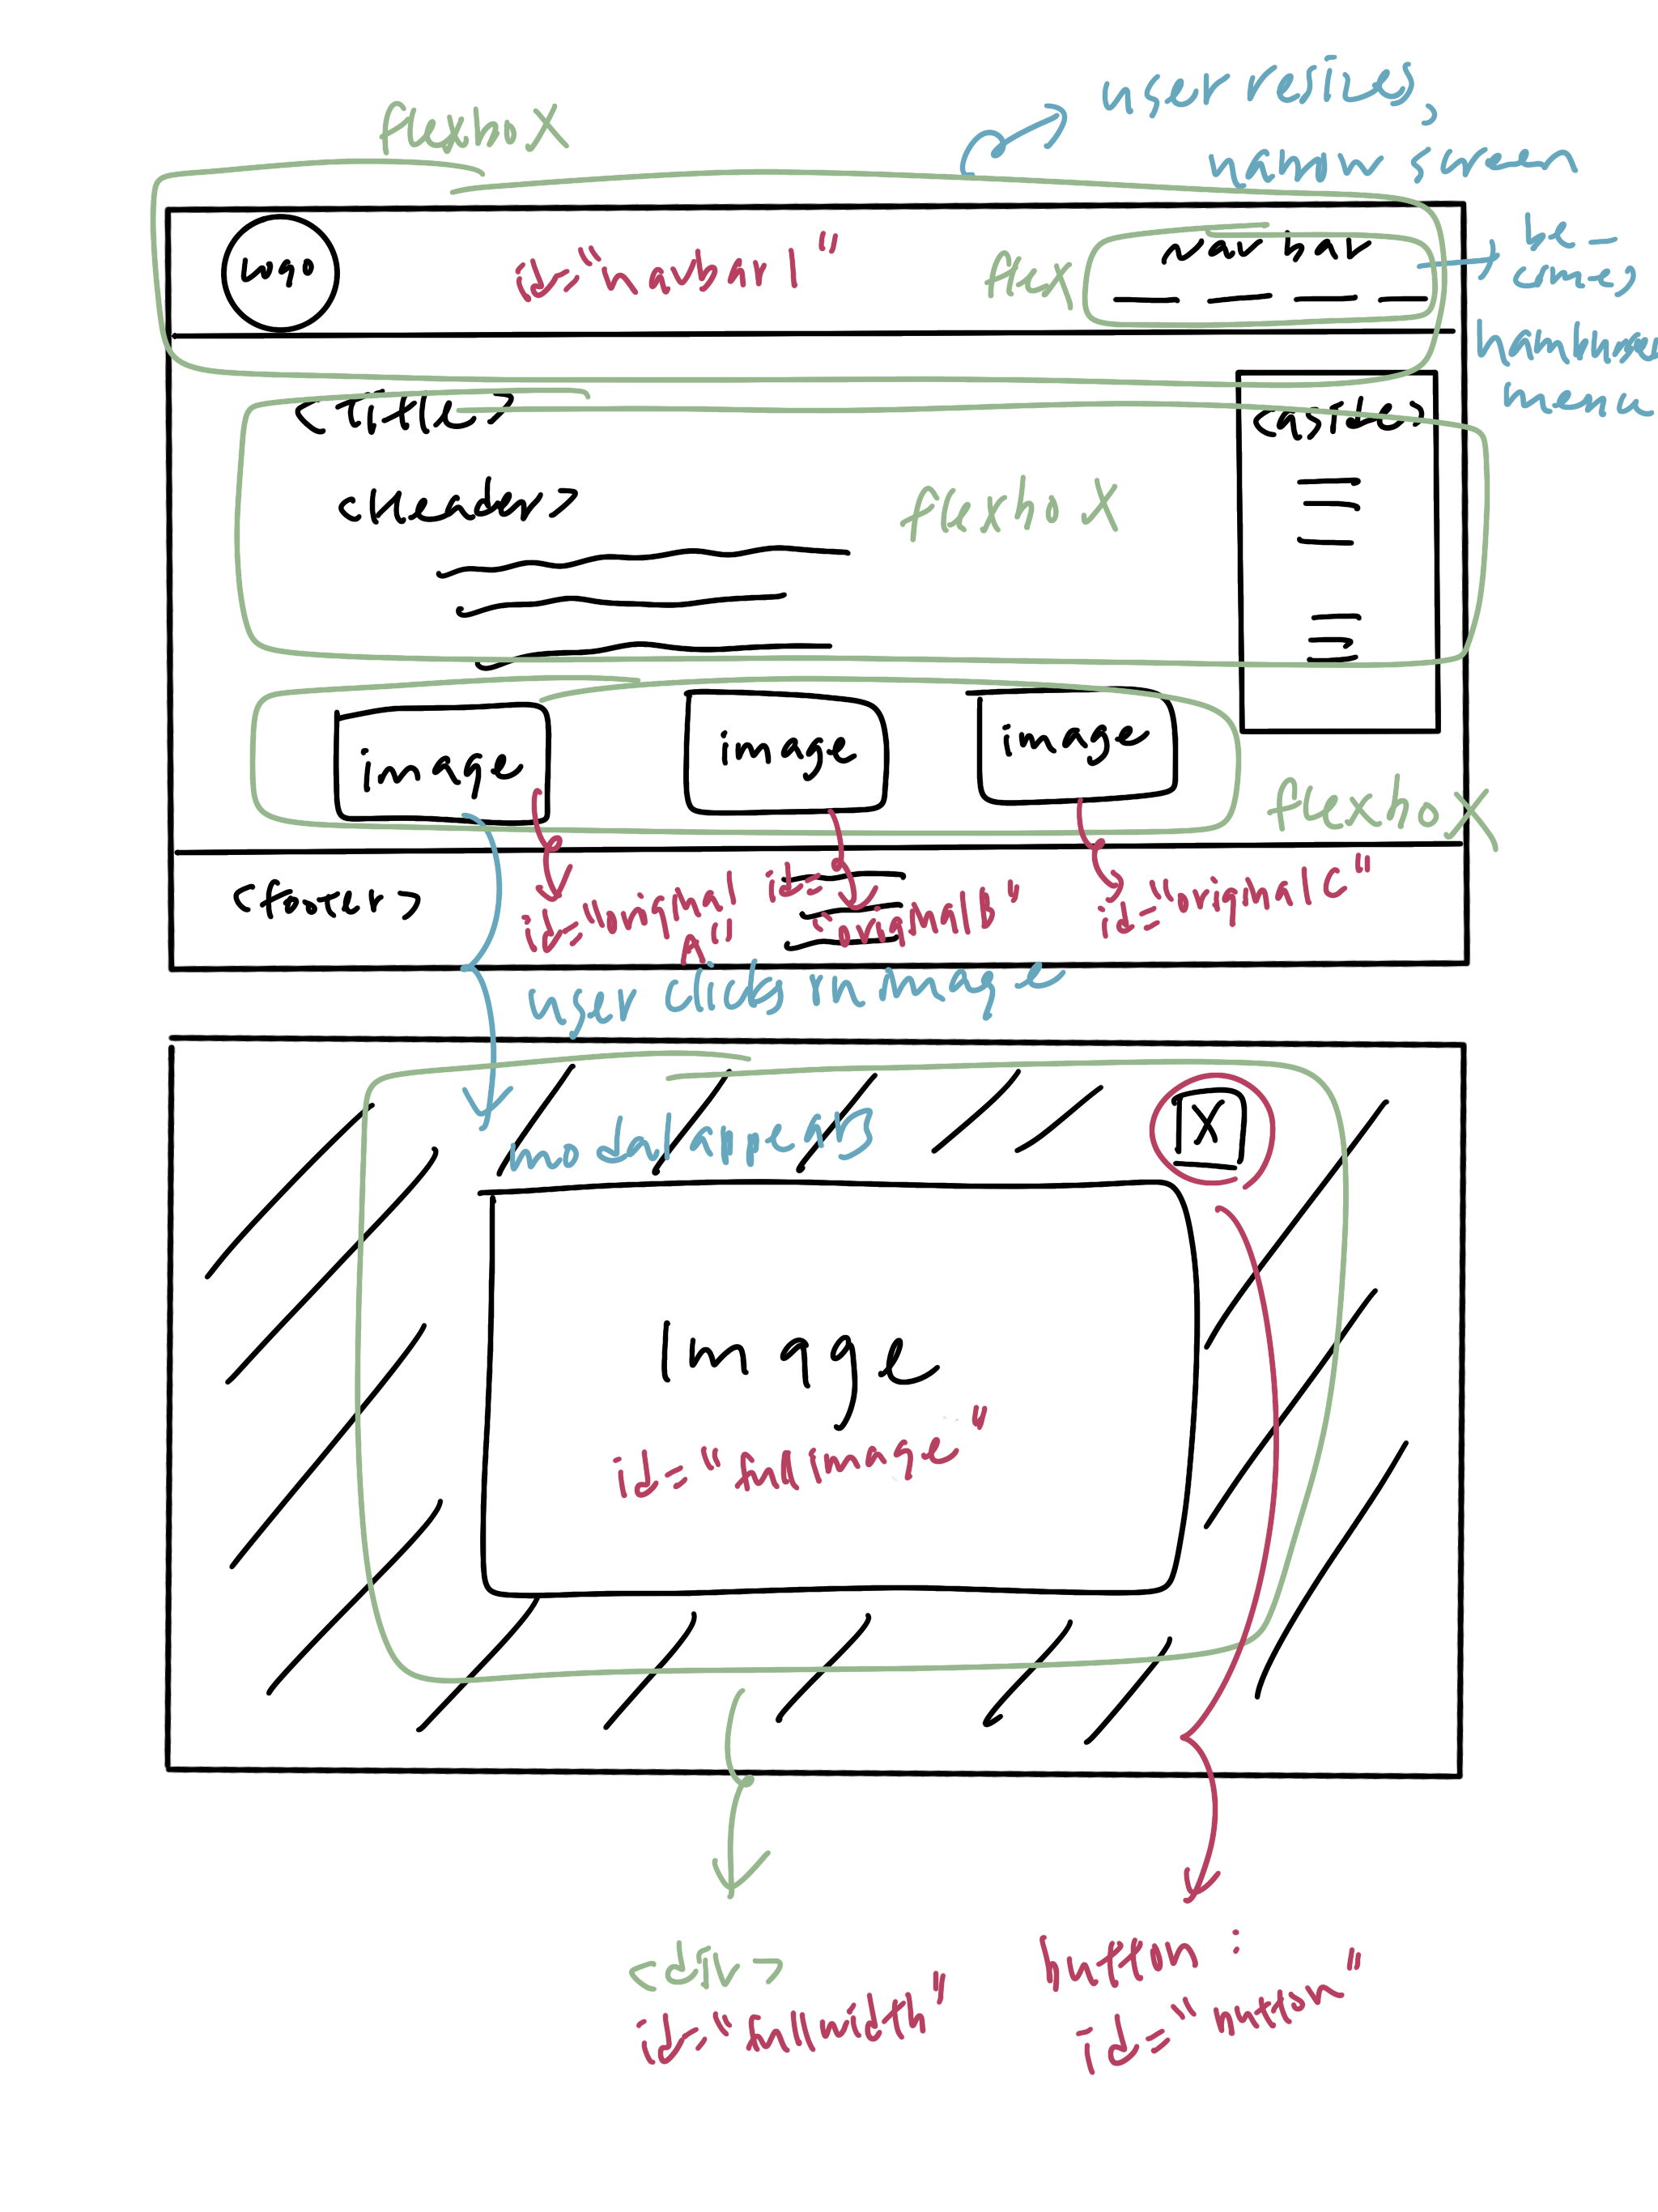 flexbox
user resizes,
narrow screen
logo
id="navbar1"
flex
nav bar
be-
comes
hamburger
menu
<title>
<aside>
<header>
flexbox
image
image
image
flexbox
<footer>
id="original
A"
id=
"originalB"
id="originalC"
user clicks on image
modal appears
X
Image
id="fullimage"
<div>
id="fullwidth"
button:
id="button"